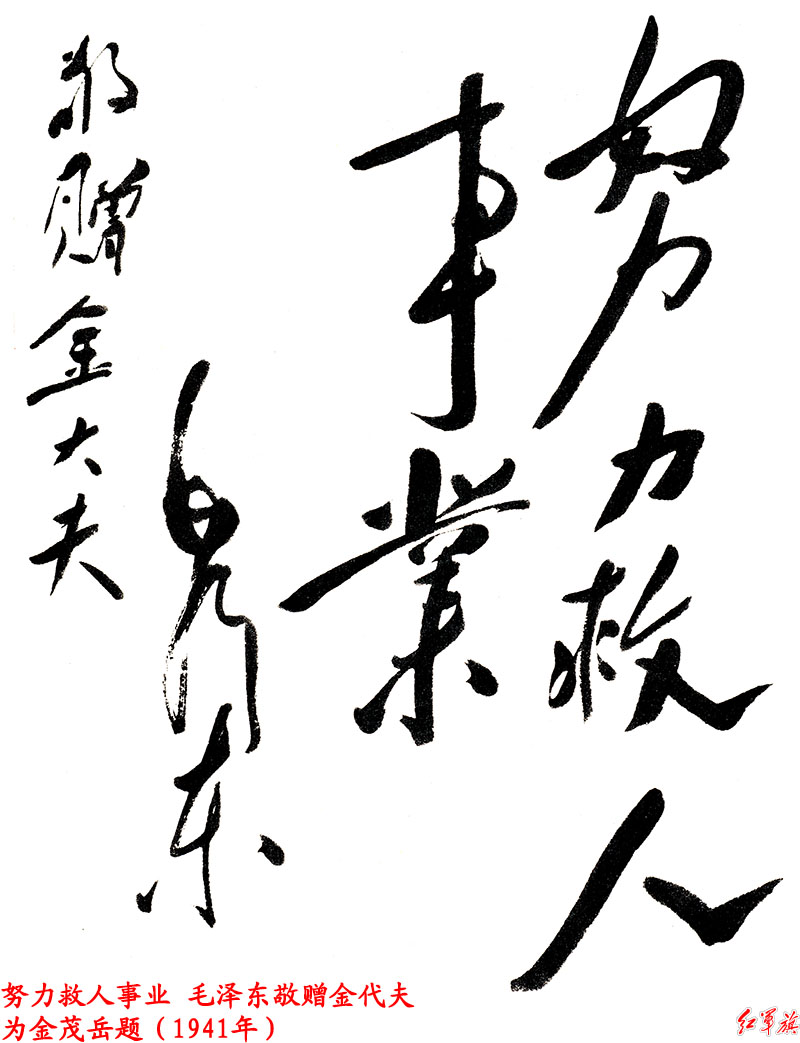 努力救人
事業
毛泽东
敬赠金大夫
努力救人事业 毛泽东敬赠金代夫
为金茂岳题（1941年）
红军旗